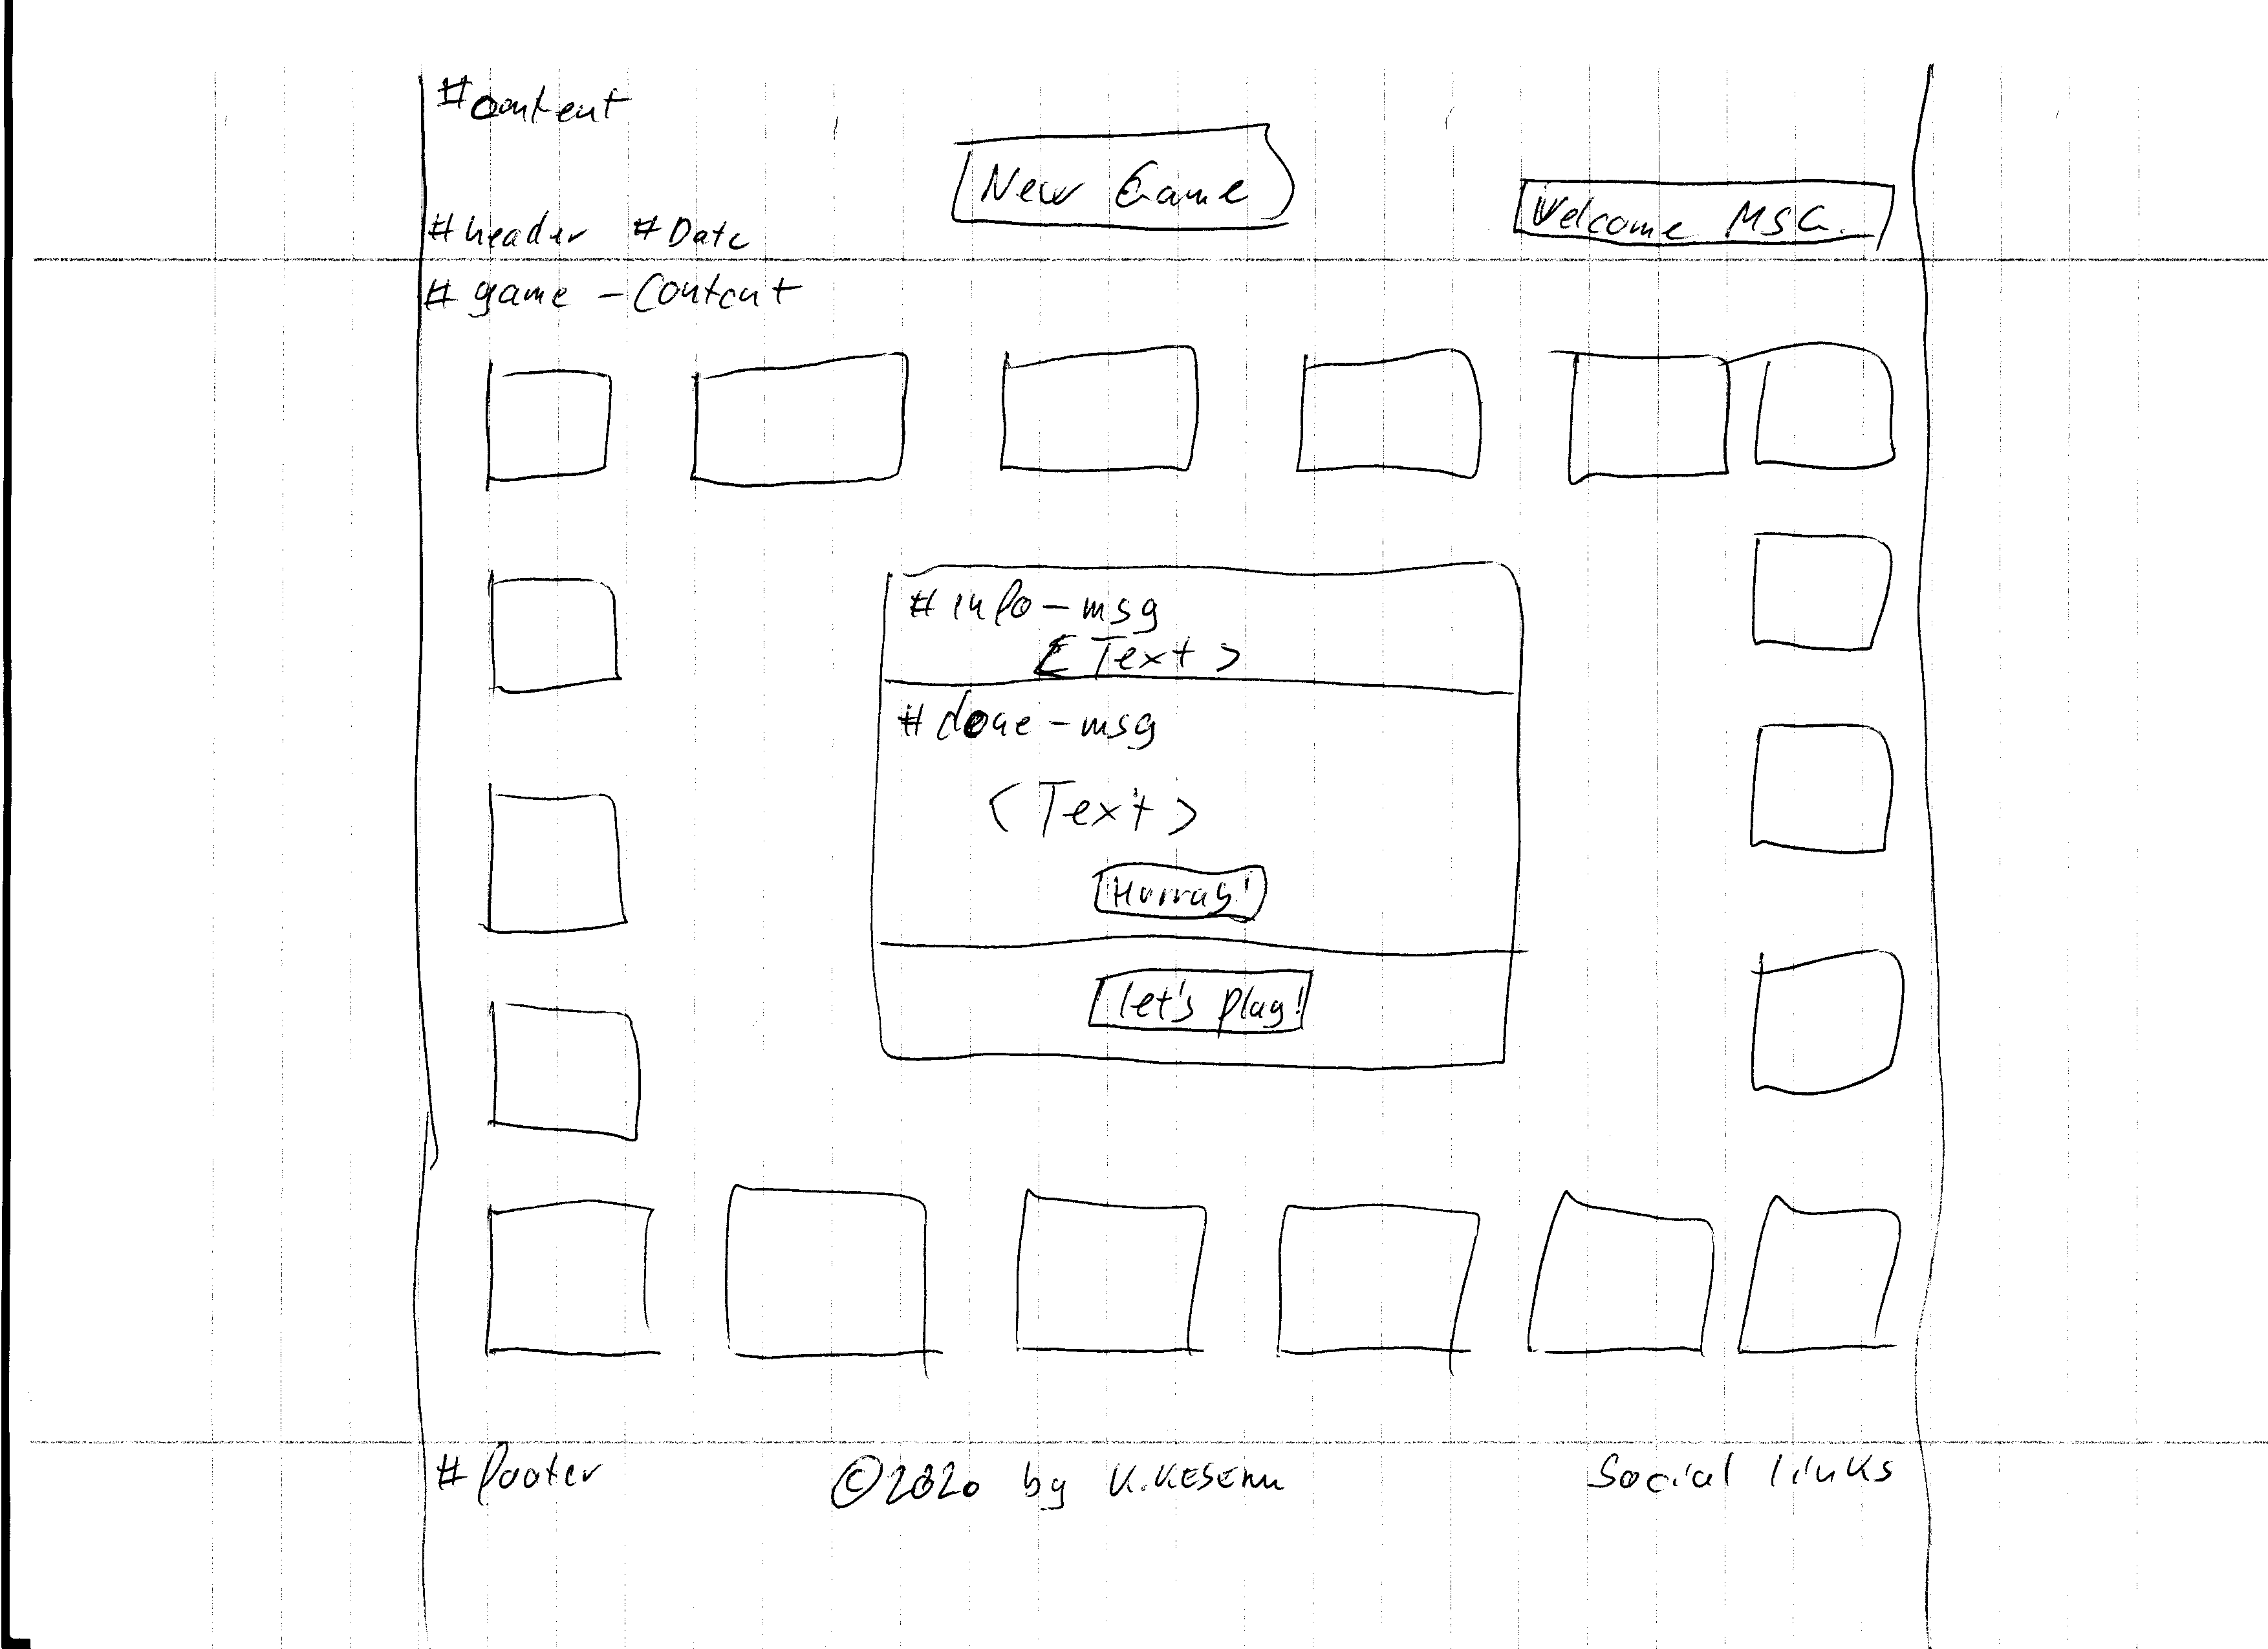 #content
New Game
Welcome MSG.
#header #Date
#game-Content
#info-msg
<Text>
#done-msg
<Text>
Hurray!
let's play!
#footer ©2020 by K.KESEKU Social links